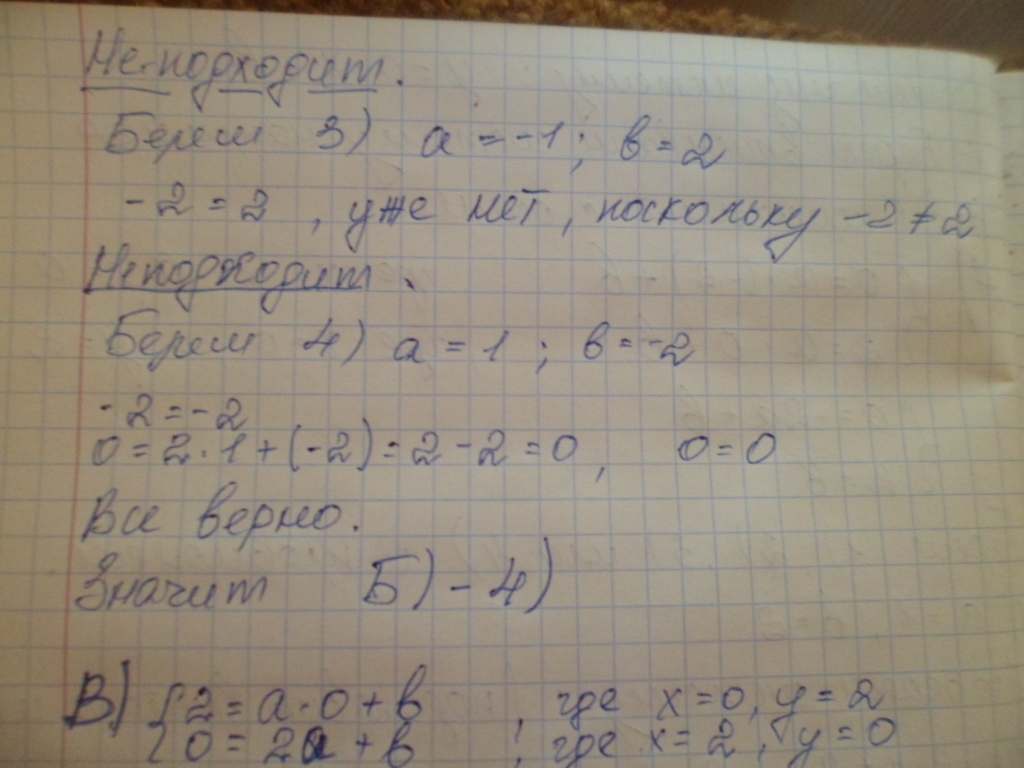 Не подходит.
Берем 3) a = -1 ; в = 2
-2 = 2 , уже нет, поскольку -2 ≠ 2
Не подходит.
Берем 4) a = 1 ; в = -2
-2 = -2
0 = 2·1 + (-2) = 2 - 2 = 0 , 0 = 0
Все верно.
Значит Б) - 4)
В) { 2 = a·0 + в , где x = 0, y = 2
0 = 2a + в ; где x = 2, y = 0